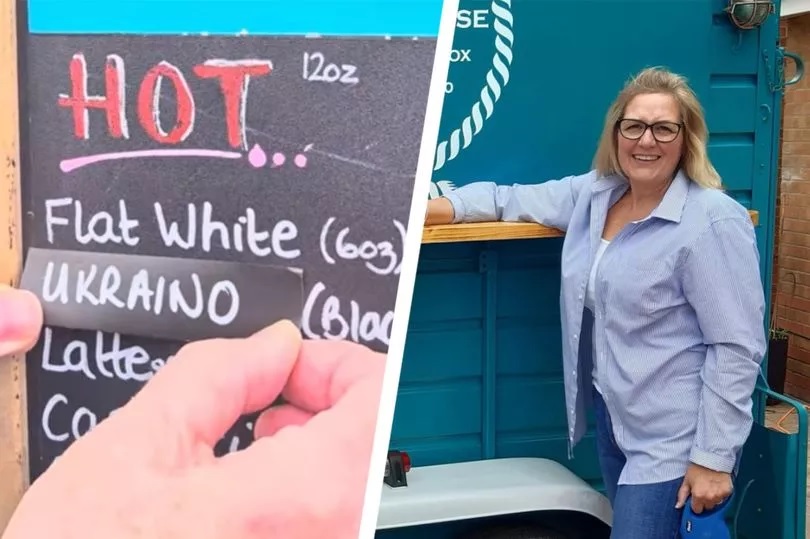 HOT 12oz
Flat White (6oz)
UKRAINO (Blac
Latte
Ca
SE
OX